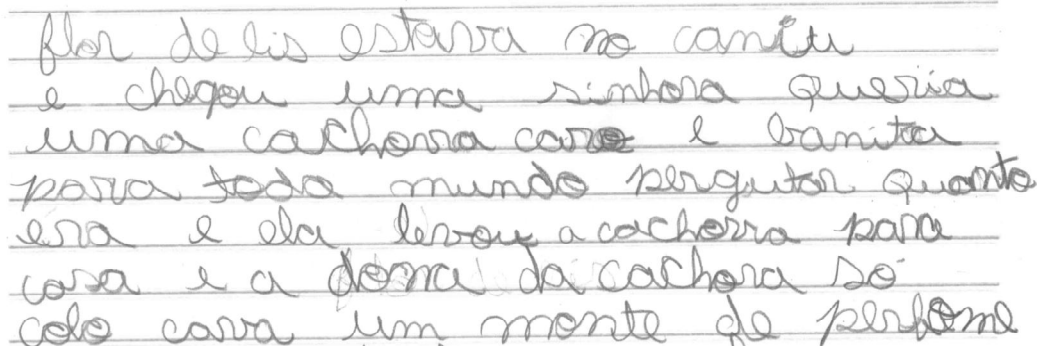 flor de lis estava no caniu
e chegou uma sinhora queria
uma cachorra care e banita
para toda mundo pergutar quanto
era e ela levou a cachorra para
casa e a dona da cachora só
colo cava um monte de perfome